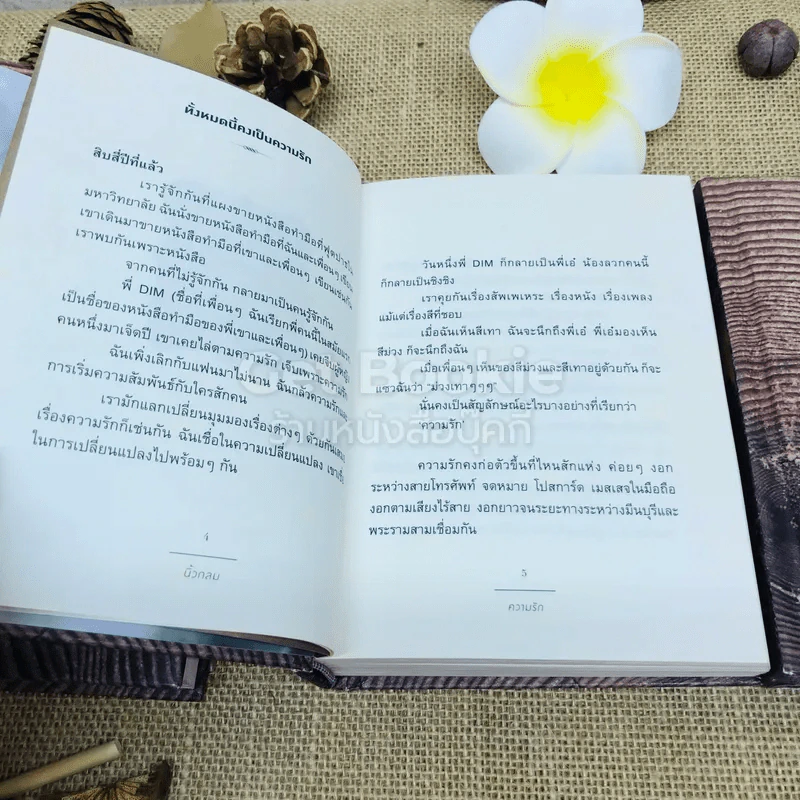 ทั้งหมดนี้คงเป็นความรัก
สิบสี่ปีที่แล้ว
เรารู้จักกันที่แผงขายหนังสือทำมือที่ฟุตปาธใน
มหาวิทยาลัย ฉันนั่งขายหนังสือทำมือที่ฉันและเพื่อนๆ เขียน
เขาเดินมาขายหนังสือทำมือที่เขาและเพื่อนๆ เขียนเช่นกัน
เราพบกันเพราะหนังสือ
จากคนที่ไม่รู้จักกัน กลายมาเป็นคนรู้จักกัน
พี่ DIM (ชื่อที่เพื่อนๆ ฉันเรียกพี่คนนี้ในสมัยแรก
เป็นชื่อของหนังสือทำมือของพี่เขาและเพื่อนๆ) เคยจีบ
คนหนึ่งมาเจ็ดปี เขาเคยไล่ตามความรัก เจ็บเพราะความรัก
ฉันเพิ่งเลิกกับแฟนมาไม่นาน ฉันกลัวความรักและ
การเริ่มความสัมพันธ์กับใครสักคน
เรามักแลกเปลี่ยนมุมมองเรื่องต่างๆ ด้วยกันเสมอ
เรื่องความรักก็เช่นกัน ฉันเชื่อในความเปลี่ยนแปลง เขาเชื่อ
ในการเปลี่ยนแปลงไปพร้อมๆ กัน
4
นิ้วกลม
วันหนึ่งพี่ DIM ก็กลายเป็นพี่เอ๋ น้องลวกคนนี้
ก็กลายเป็นชิงชิง
เราคุยกันเรื่องสัพเพเหระ เรื่องหนัง เรื่องเพลง
แม้แต่เรื่องสีที่ชอบ
เมื่อฉันเห็นสีเทา ฉันจะนึกถึงพี่เอ๋ พี่เอ๋มองเห็น
สีม่วง ก็จะนึกถึงฉัน
เมื่อเพื่อนๆ เห็นของสีม่วงและสีเทาอยู่ด้วยกัน ก็จะ
แซวฉันว่า "ม่วงเทาๆๆๆ"
นั่นคงเป็นสัญลักษณ์อะไรบางอย่างที่เรียกว่า
'ความรัก'
ความรักคงก่อตัวขึ้นที่ไหนสักแห่ง ค่อยๆ งอก
ระหว่างสายโทรศัพท์ จดหมาย โปสการ์ด เมสเสจในมือถือ
งอกตามเสียงไร้สาย งอกยาวจนระยะทางระหว่างมีนบุรีและ
พระรามสามเชื่อมกัน
5
ความรัก
Get Bookie
ร้านหนังสือบุ๊คกี้